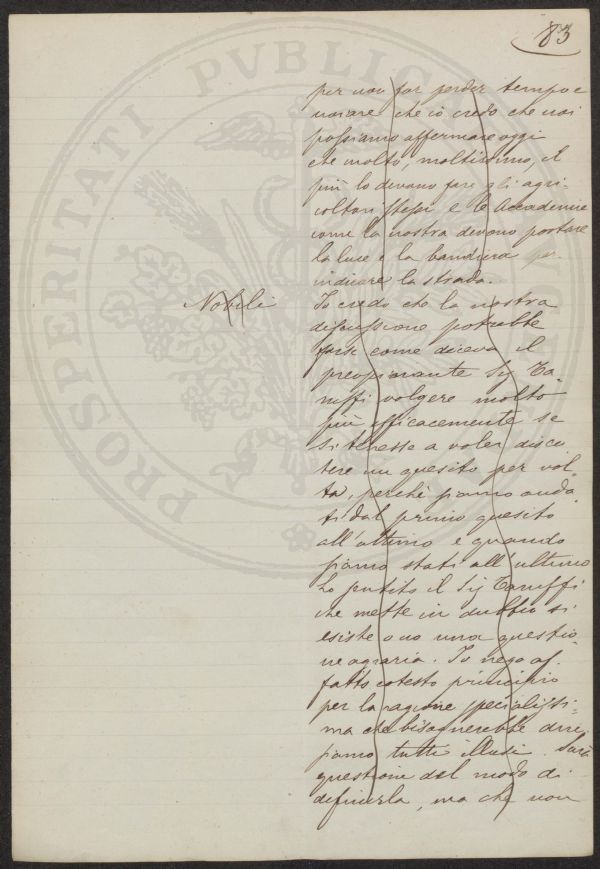 83
per non far perder tempo e
che io credo che noi
possiamo affermare oggi
che molto, moltissimo, il
più lo devono fare gli agri-
coltori stessi e le Accademie
come la nostra devono portare
la luce e la bandiera per
indicare la strada.
Nobili
Io credo che la nostra
discussione potrebbe
forse come diceva il
preopinante Sig Ta-
ruffi volgere molto
più efficacemente se
si tenesse a voler discu
tere un quesito per vol-
ta, perchè siamo anda
ti dal primo quesito
all'ultimo e quando
siamo stati all'ultimo
ho sentito il Sig Taruffi
che mette in dubbio si
esiste o no una questio
ne agraria. Io nego af-
fatto cotesto principio
per la ragione specialissi-
ma che bisognerebbe dire
siamo tutti illusi. Sarà
questione del modo di
definirla, ma che non
PROSPERITATI PVBLICAE